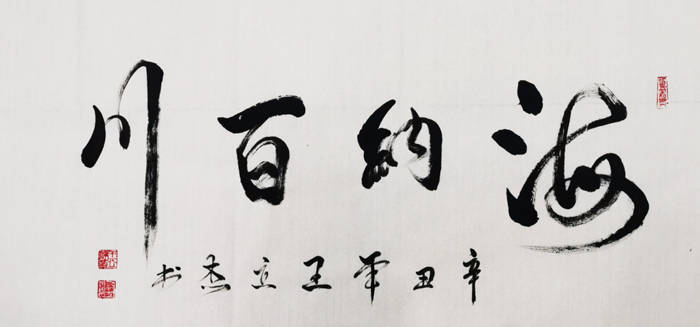 海纳百川
辛丑年王立杰书